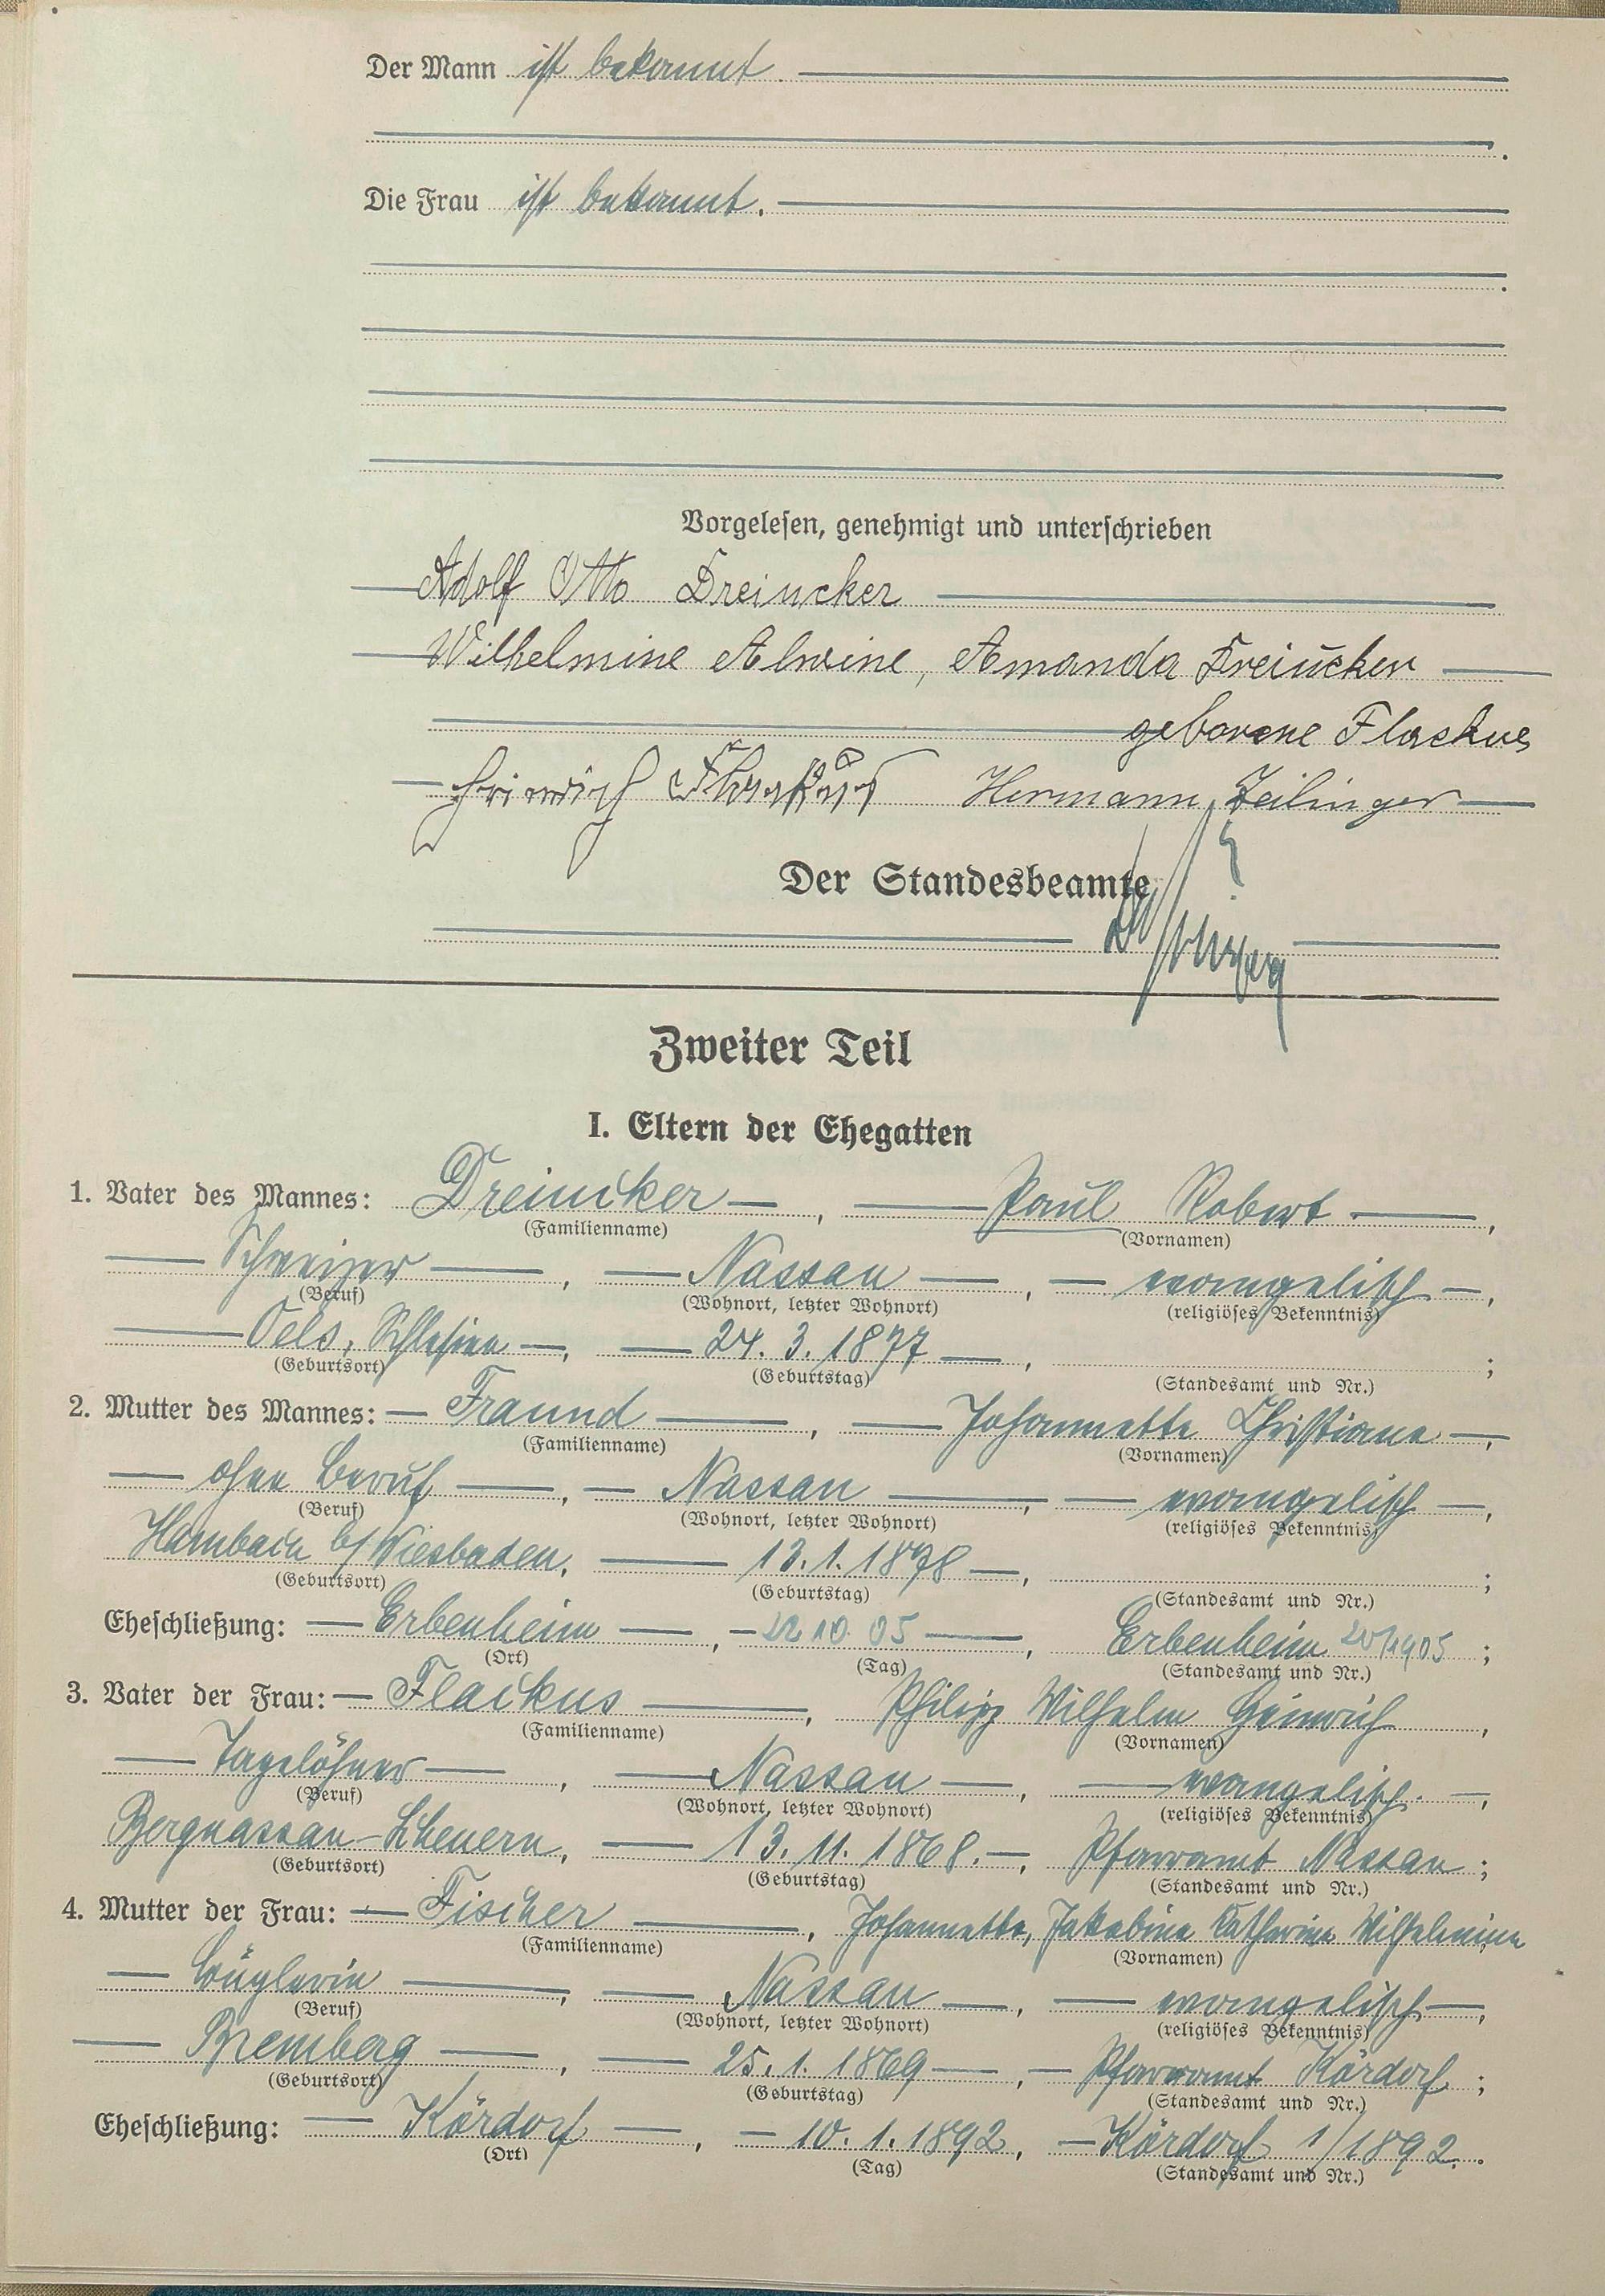 Der Mann ist bekannt.
Die Frau ist bekannt.
Vorgelesen, genehmigt und unterschrieben
Adolf Otto Dreiucker
Wilhelmine Alwine, Amanda Dreiucker
geborene Flackus
Heinrich Flackus Hermann Zeilinger
Der Standesbeamte
Zweiter Teil
I. Eltern der Ehegatten
1. Vater des Mannes: Dreiucker, Paul Robert,
(Familienname) (Vornamen)
Schweizer, Nassau, evangelisch,
(Beruf) (Wohnort, letzter Wohnort) (religiöses Bekenntnis)
Oels, Schlesien, 24. 3. 1877, ;
(Geburtsort) (Geburtstag) (Standesamt und Nr.)
2. Mutter des Mannes: Fraund, Johannette Christiane,
(Familienname) (Vornamen)
ohne Beruf, Nassau, evangelisch,
(Beruf) (Wohnort, letzter Wohnort) (religiöses Bekenntnis)
Hambach b/ Wiesbaden, 13. 1. 1878, ;
(Geburtsort) (Geburtstag) (Standesamt und Nr.)
Eheschließung: Erbenheim, 22 10. 05, Erbenheim 20/1905;
(Ort) (Tag) (Standesamt und Nr.)
3. Vater der Frau: Flackus, Philipp Wilhelm Heinrich,
(Familienname) (Vornamen)
Tagelöhner, Nassau, evangelisch.,
(Beruf) (Wohnort, letzter Wohnort) (religiöses Bekenntnis)
Bergnassau-Scheuern, 13. 11. 1868., Pfarramt Nassau;
(Geburtsort) (Geburtstag) (Standesamt und Nr.)
4. Mutter der Frau: Fischer, Johannette, Jakobine Katharine Wilhelmine
(Familienname) (Vornamen)
Büglerin, Nassau, evangelisch,
(Beruf) (Wohnort, letzter Wohnort) (religiöses Bekenntnis)
Bremberg, 25. 1. 1869, Pfarramt Kördorf;
(Geburtsort) (Geburtstag) (Standesamt und Nr.)
Eheschließung: Kördorf, 10. 1. 1892, Kördorf 1/1892.
(Ort) (Tag) (Standesamt und Nr.)